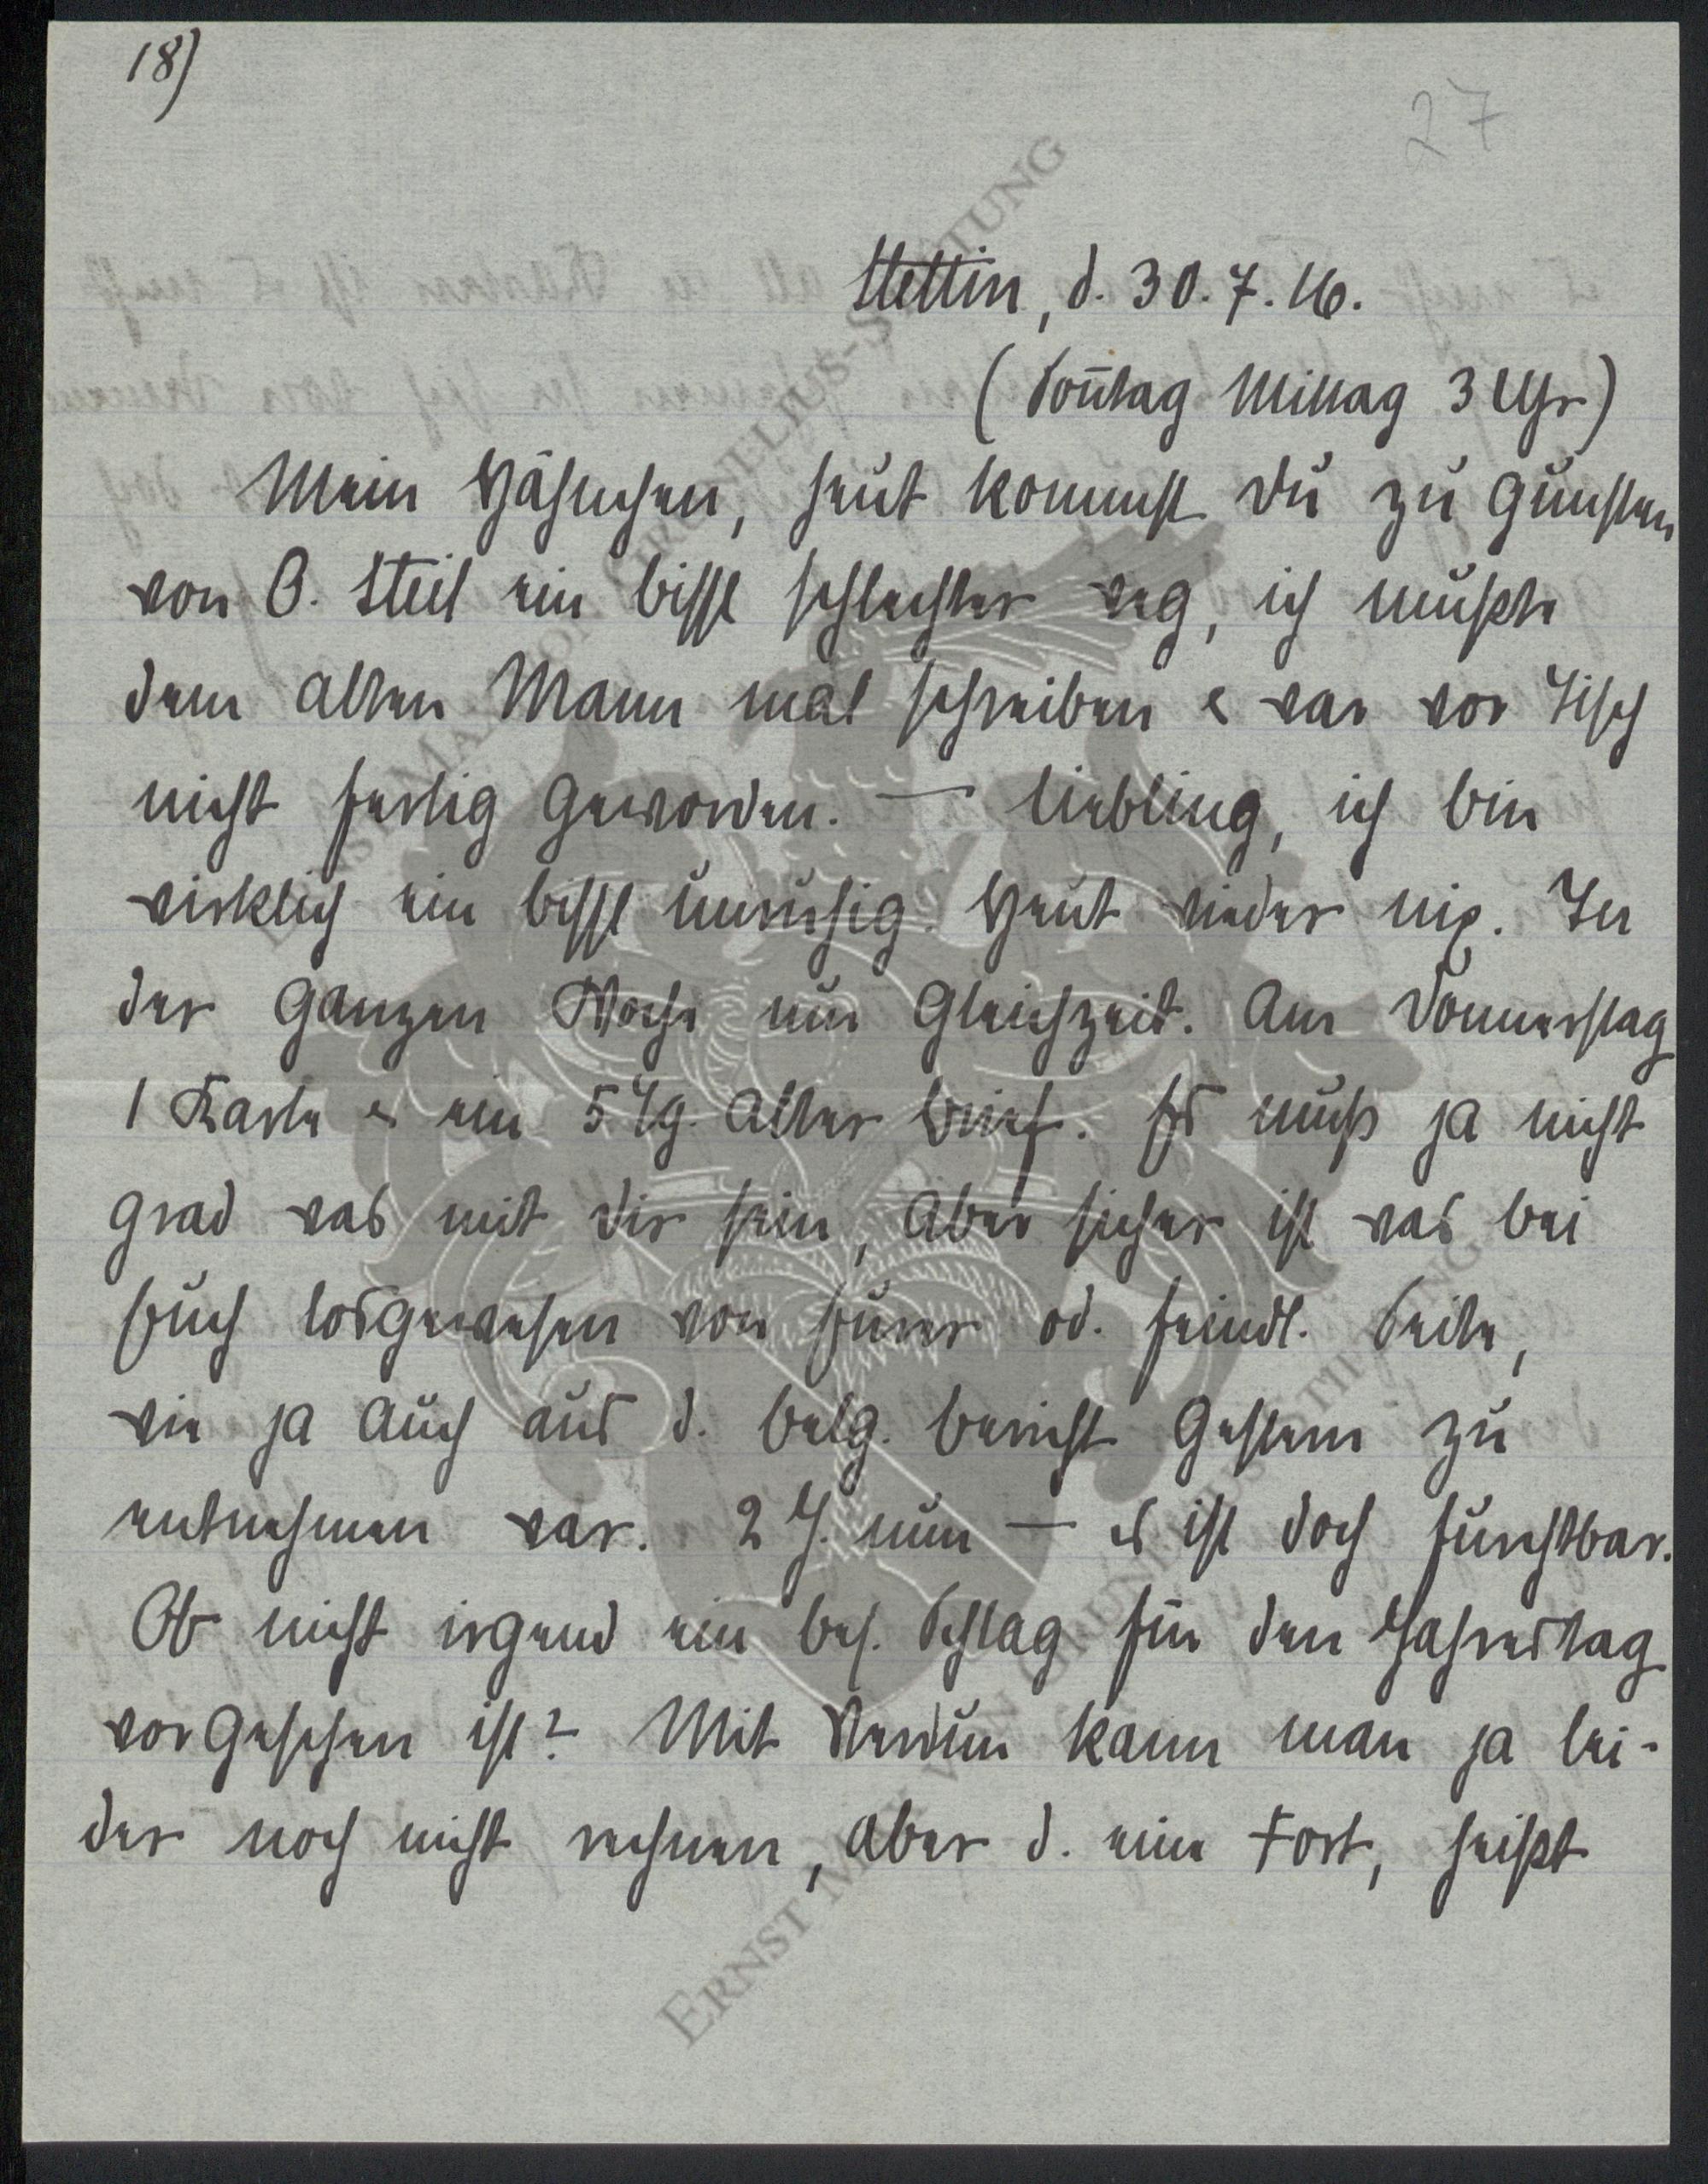 18)
27
Stettin, d. 30. 7. 16.
(Sonntag Mittag 3 Uhr)
Mein Häschen, heut kommst Du zu Gunsten
von O. Steil ein bissl schlechter weg, ich mußte
dem alten Mann mal schreiben & war vor Tisch
nicht fertig geworden. — Liebling, ich bin
wirklich ein bissl unruhig. Heut wieder nix. In
der ganzen Woche nur Gleichzeit. Am Donnerstag
1 Karte & ein 5 Tg. alter Brief. Es muß ja nicht
grad was mit Dir sein, aber sicher ist was bei
Euch losgewesen von Eurer od. feindl. Seite,
wie ja auch aus d. belg. Bericht gestern zu
entnehmen war. 2 J. nun — es ist doch furchtbar.
Ob nicht irgend ein bes. Schlag für den Jahrestag
vorgesehen ist? Mit Verdun kann man ja lei-
der noch nicht rechnen, aber d. eine Fort, heißt
ERNST MAX VON GRUNELIUS-STIFTUNG
ERNST MAX VON GRUNELIUS-STIFTUNG